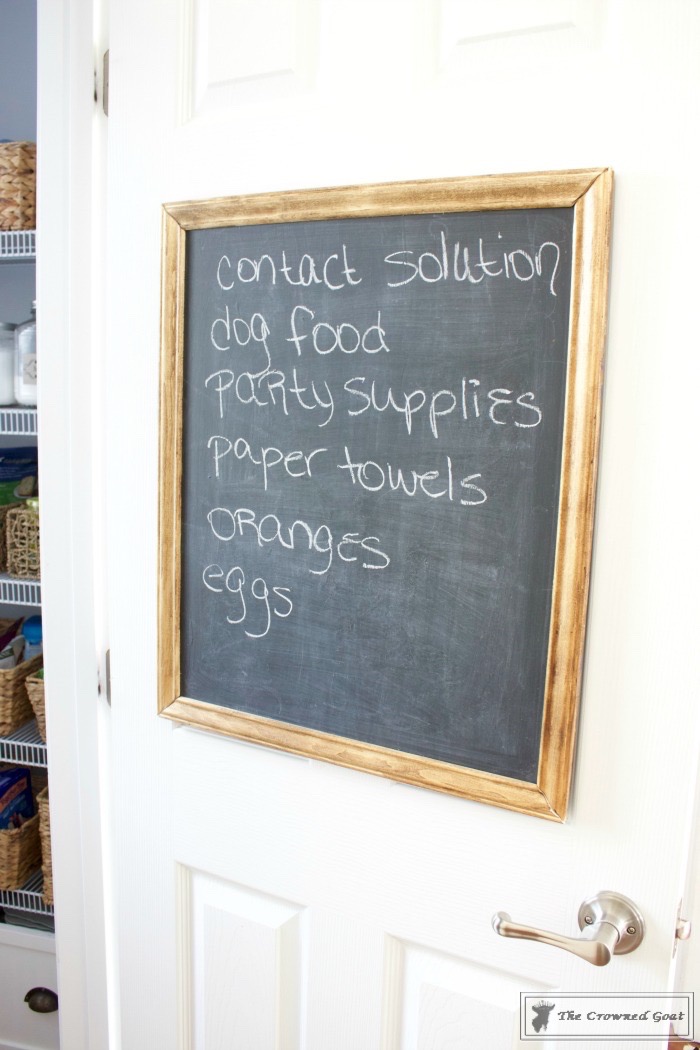 contact solution
dog food
party supplies
paper towels
oranges
eggs
The Crowned Goat